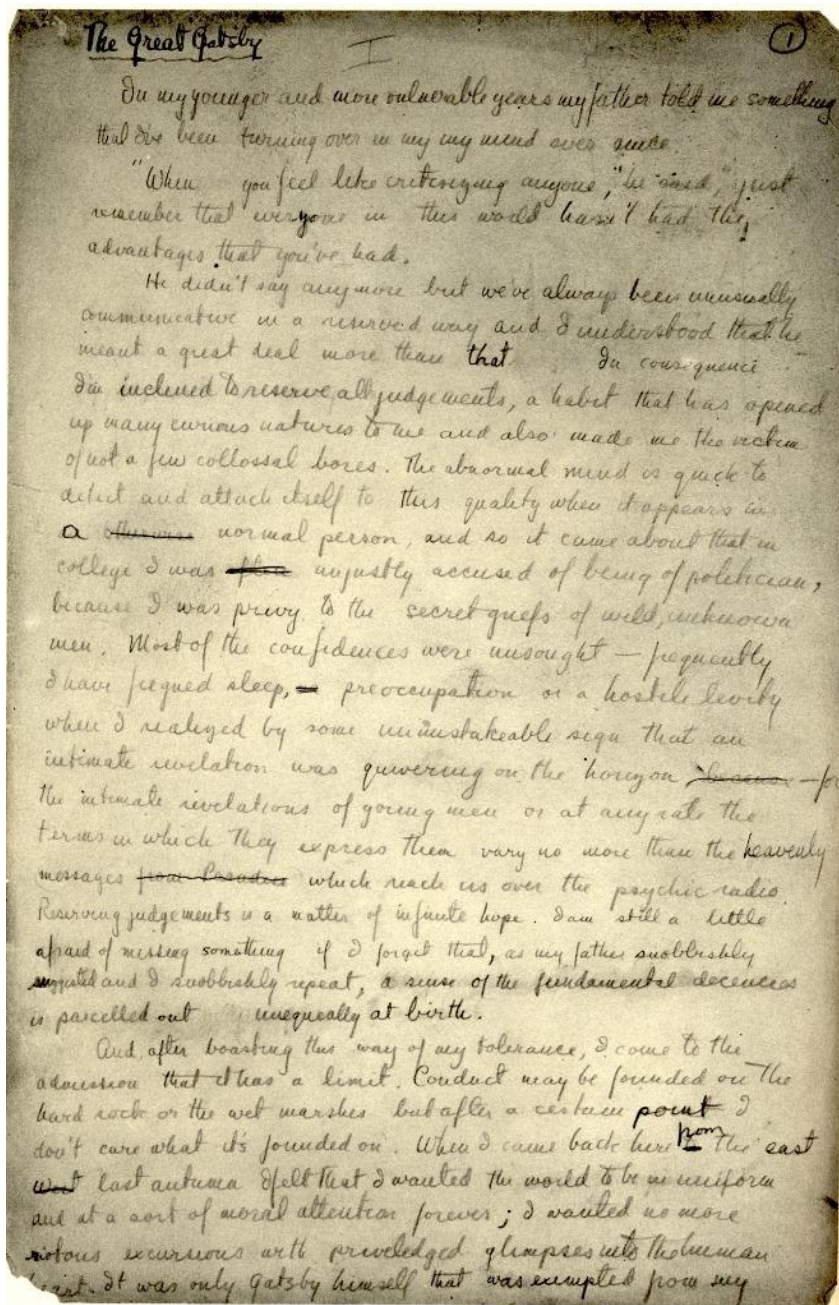 The Great Gatsby
I
1
In my younger and more vulnerable years my father told me something
that I've been turning over in my my mind ever since.
"When you feel like critisizing anyone," he said, "just
remember that everyone in this world hasn't had the
advantages that you've had.
He didn't say anymore but we've always been unusually
communicative in a reserved way and I understood that he
meant a great deal more than that In consequence
I'm inclined to reserve all judgements, a habit that has opened
up many curious natures to me and also made me the victim
of not a few collossal bores. The abnormal mind is quick to
detect and attach itself to this quality when it appears in
a otherwise normal person, and so it came about that in
college I was unjustly accused of being of politician,
because I was privy to the secret griefs of wild, unknown
men. Most of the confidences were unsought — frequently
I have fiegned sleep, preoccupation or a hostile levity
when I realized by some unmistakeable sign that an
intimate revelation was quivering on the horizon — for
the intimate revelations of young men or at any rate the
terms in which they express them vary no more than the heavenly
messages from Paradise which reach us over the psychic radio.
Reserving judgements is a matter of infinite hope. I am still a little
afraid of missing something if I forget that, as my father snobbishly
suggested and I snobbishly repeat, a sense of the fundamental decencies
is parcelled out unequally at birth.
And, after boasting this way of my tolerance, I come to the
admission that it has a limit. Conduct may be founded on the
hard rock or the wet marshes but after a certain point I
don't care what it's founded on. When I came back here from the east
west last autumn I felt that I wanted the world to be in uniform
and at a sort of moral attention forever; I wanted no more
riotous excursions with priviledged glimpses into the human
heart. It was only Gatsby himself that was exempted from my